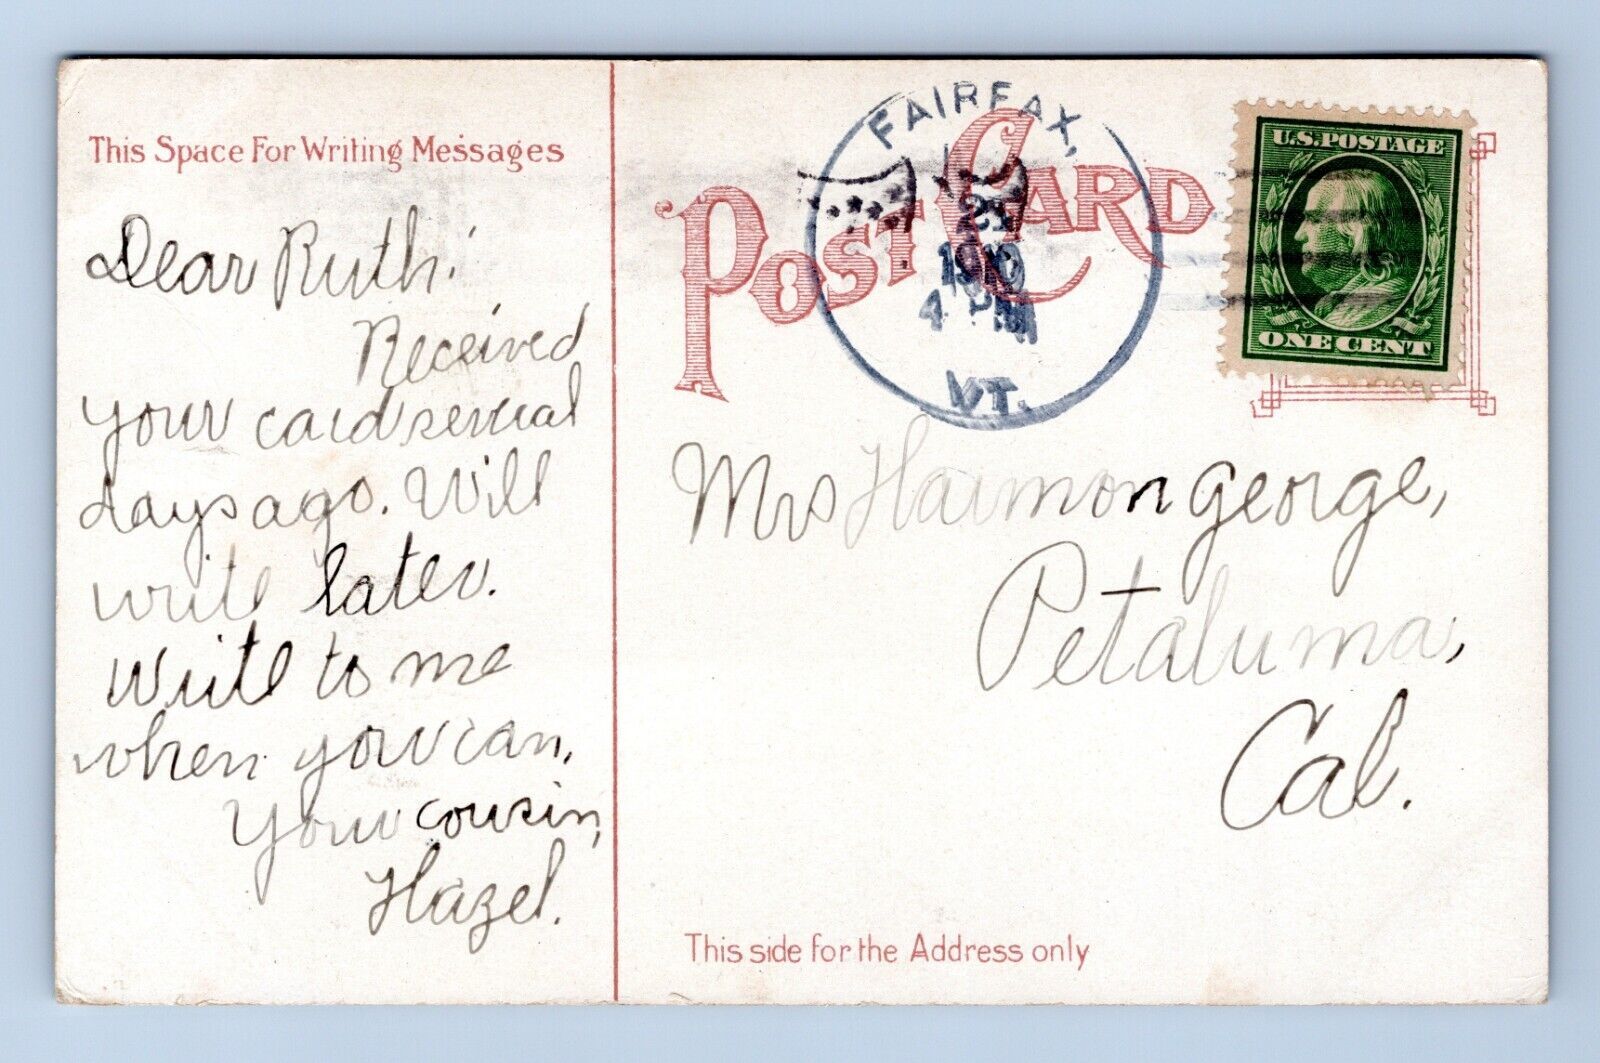 This Space For Writing Messages
Dear Ruth:
Received
your card several
days ago. Will
write later.
Write to me
when you can,
Your cousin,
Hazel.
POST CARD
FAIRFAX,
21
1910
4 PM
VT.
U.S. POSTAGE
ONE CENT
Mrs Harmon George,
Petaluma,
Cal.
This side for the Address only